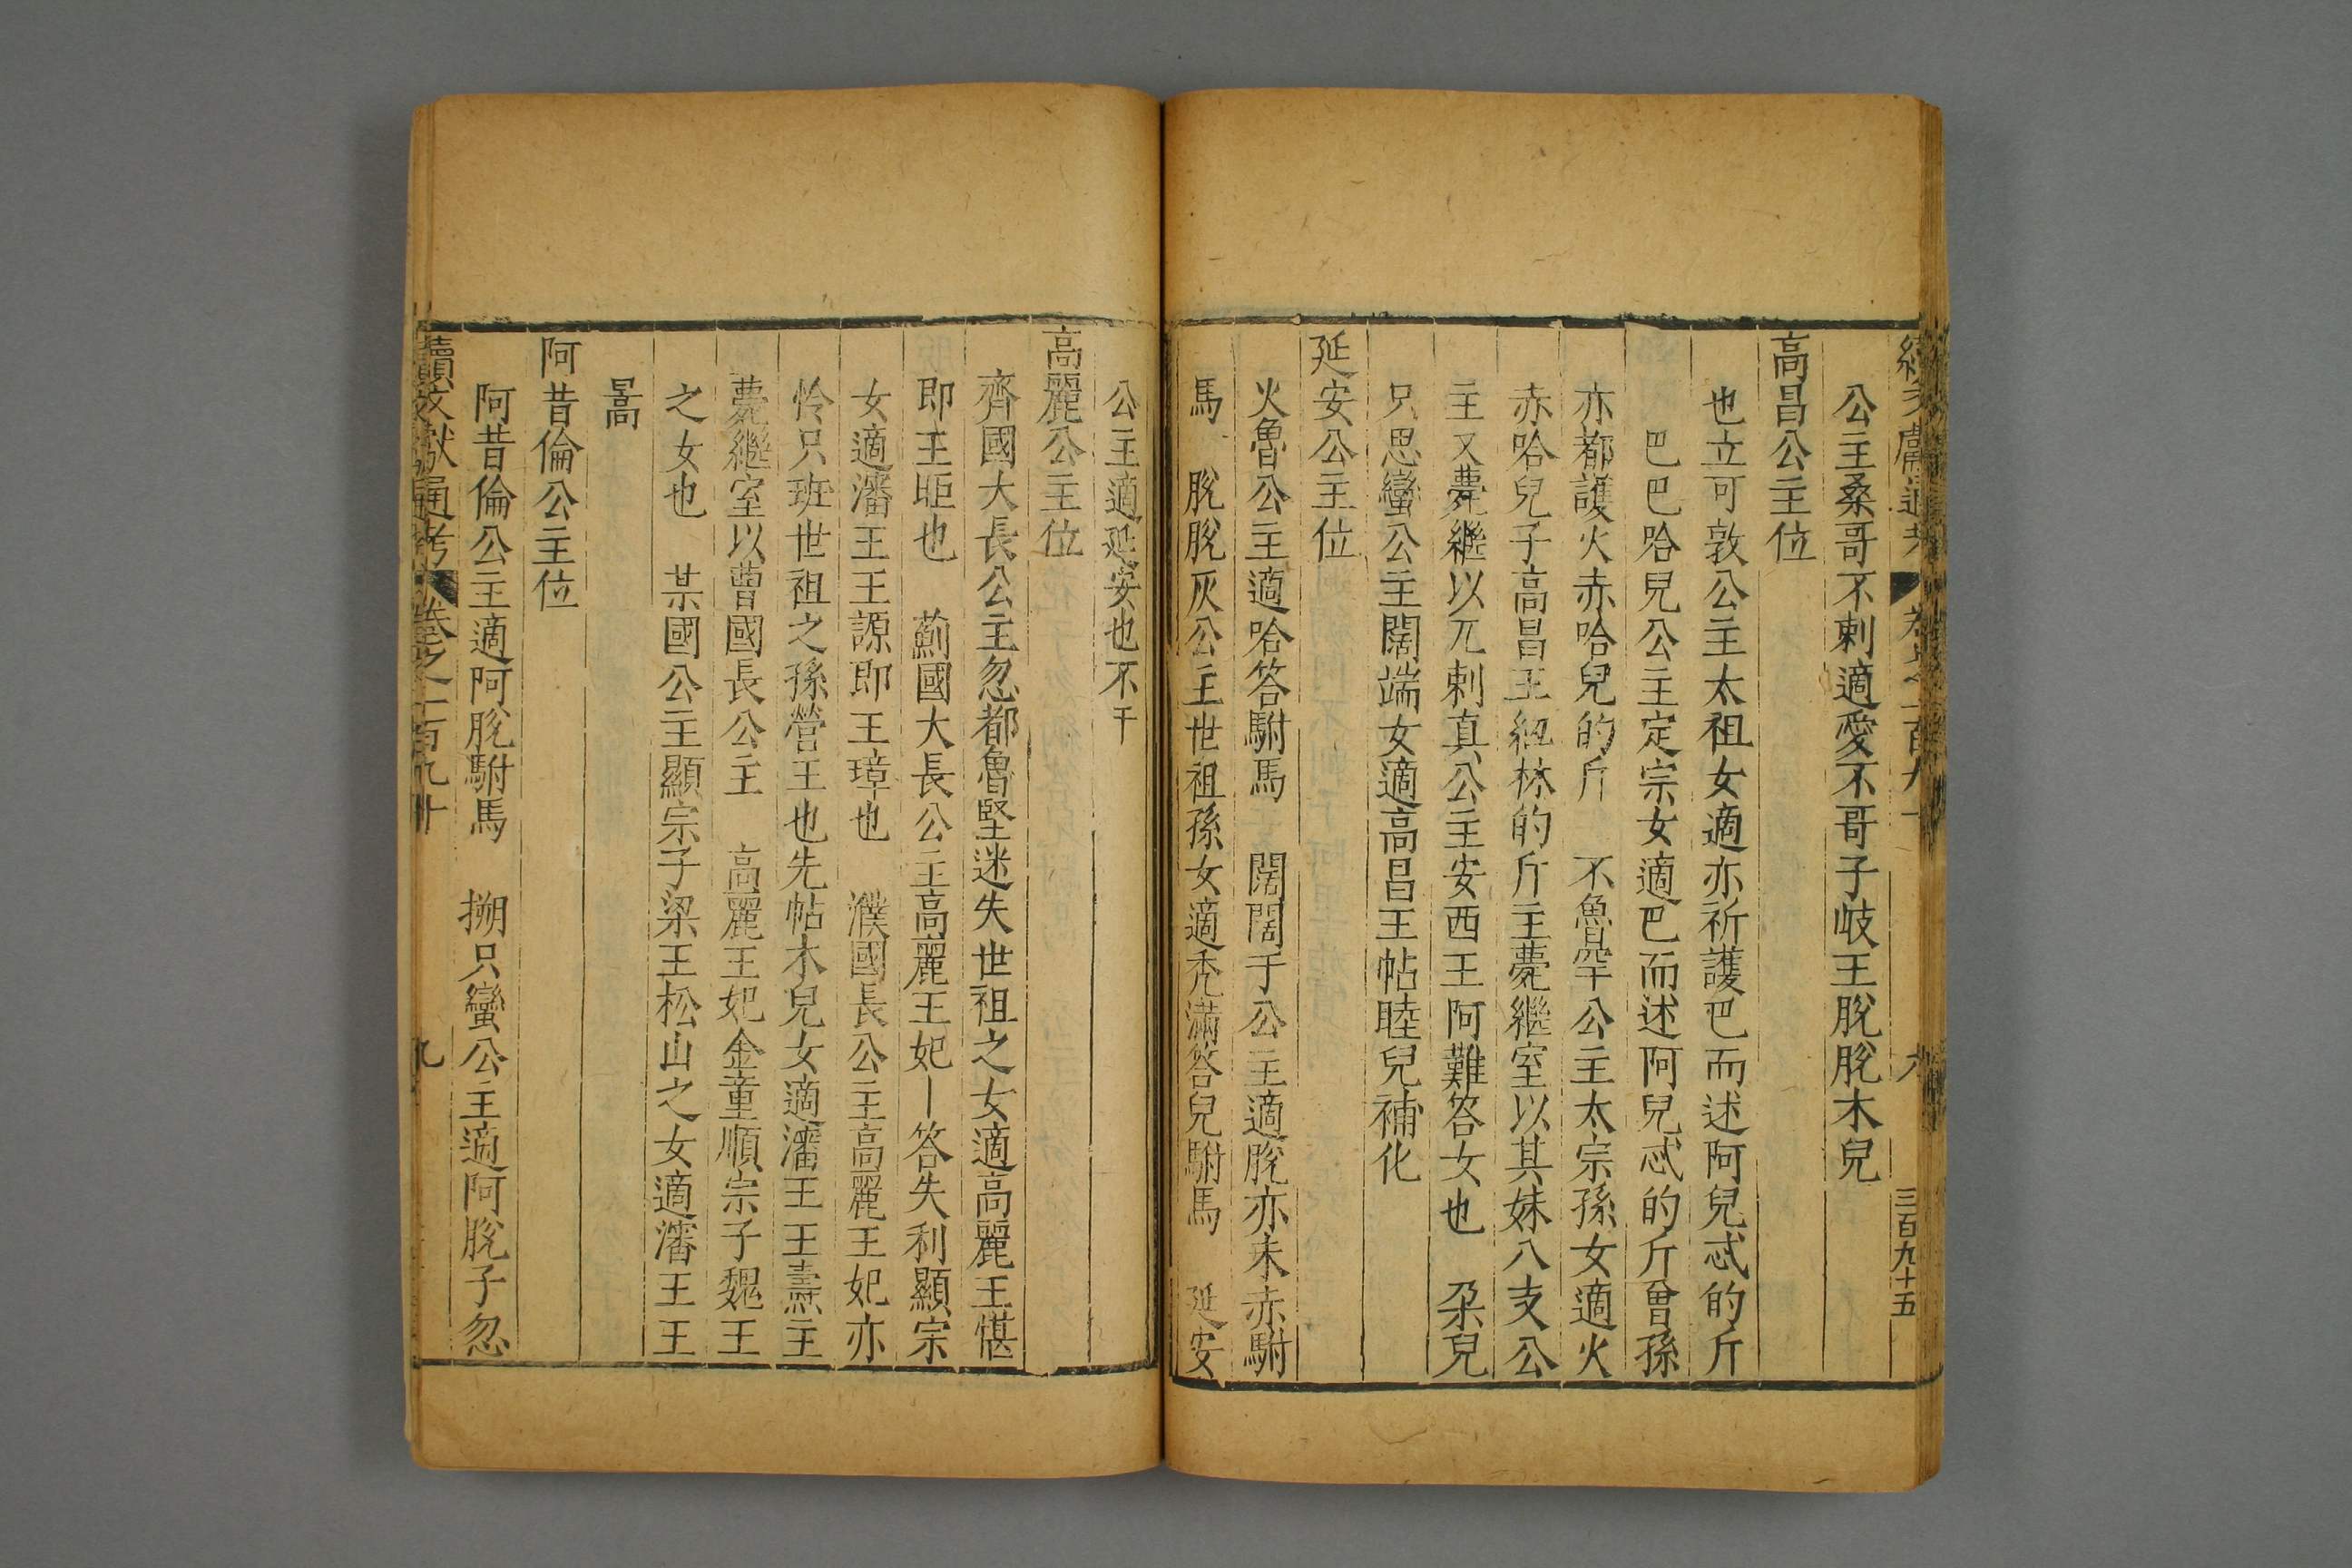 續文獻通考 卷之二百九十 八 三百九十五
公主桑哥不剌適愛不哥子岐王脫脫木兒
高昌公主位
也立可敦公主太祖女適亦祈護巴而述阿兒忒的斤
巴巴哈兒公主定宗女適巴而述阿兒忒的斤曾孫
亦都護火赤哈兒的斤 不魯罕公主太宗孫女適火
赤哈兒子高昌王紐林的斤主薨繼室以其妹八支公
主又薨繼以兀剌真公主安西王阿難答女也 朶兒
只思蠻公主闊端女適高昌王帖睦兒補化
延安公主位
火魯公主適哈答駙馬 闊闊干公主適脫亦禾赤駙
馬 脫脫灰公主世祖孫女適禿滿答兒駙馬 延安
公主適延安也不干
高麗公主位
齊國大長公主忽都魯堅迷失世祖之女適高麗王愖
即王昛也 薊國大長公主高麗王妃卜答失利顯宗
女適瀋王王謜即王璋也 濮國長公主高麗王妃亦
怜只班世祖之孫營王也先帖木兒女適瀋王王燾主
薨繼室以曹國長公主 高麗王妃金童順宗子魏王
之女也 某國公主顯宗子梁王松山之女適瀋王王
暠
阿昔倫公主位
阿昔倫公主適阿脫駙馬 搠只蠻公主適阿脫子忽
續文獻通考 卷之二百九十 九